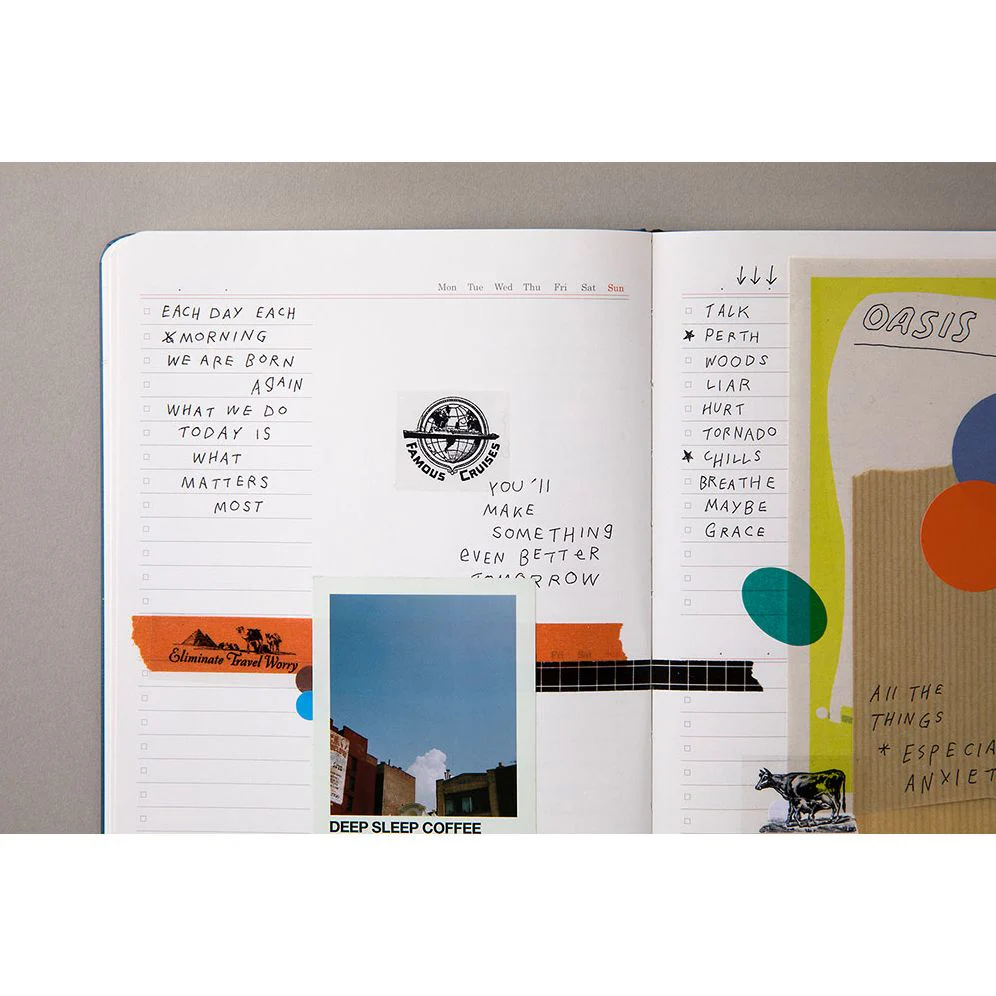 Mon Tue Wed Thu Fri Sat Sun
EACH DAY EACH
MORNING
WE ARE BORN
AGAIN
WHAT WE DO
TODAY IS
WHAT
MATTERS
MOST
FAMOUS CRUISES
YOU'll
MAKE
SOMETHING
EVEN BETTER
TOMORROW
Eliminate Travel Worry
Fri Sat
DEEP SLEEP COFFEE
↓↓↓
TALK
★ PERTH
WOODS
LIAR
HURT
TORNADO
★ CHILLS
BREATHE
MAYBE
GRACE
OASIS
All THE
THINGS
* ESPECIA
ANXIET